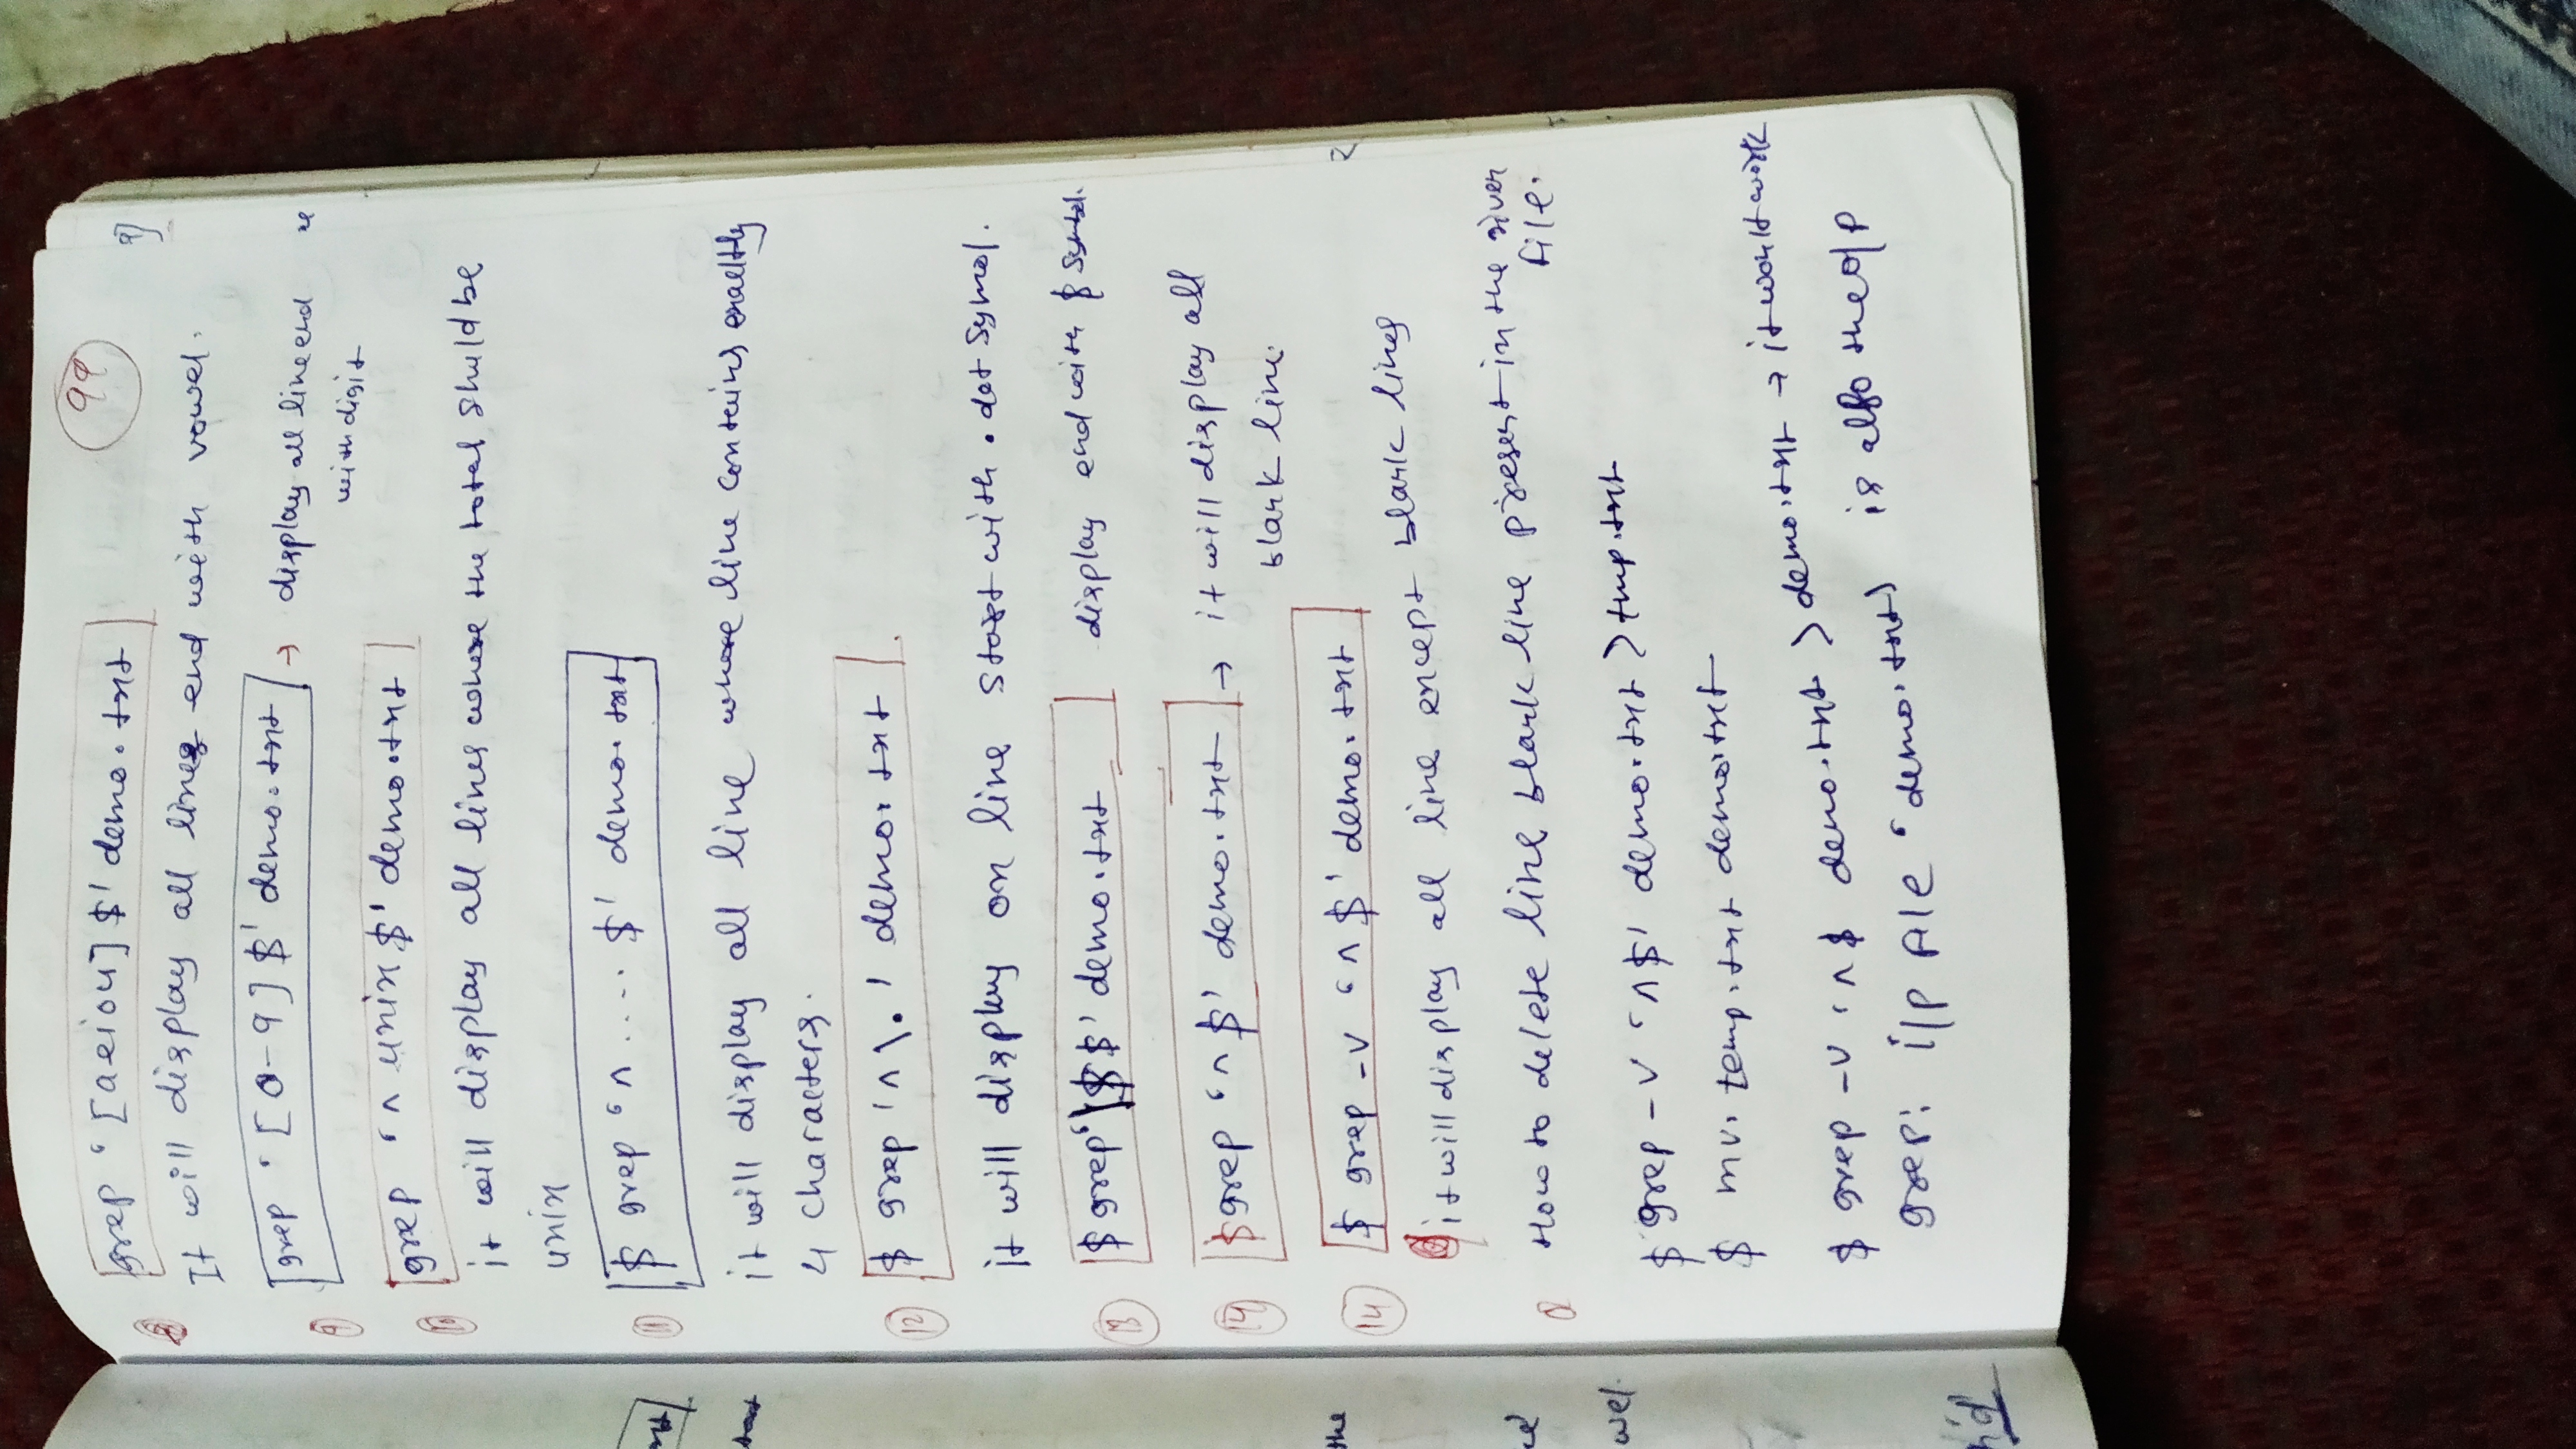 99
8 grep '[aeiou]$' demo.txt
It will display all lines end with vowel.
9 grep '[0-9]$' demo.txt → display all line end
with digit
10 grep '^unix$' demo.txt
it will display all lines where the total shuld be
unix
11 $ grep '^....$' demo.txt
it will display all line whose line contains
4 characters.
12 $ grep '^\.' demo.txt
it will display on line start with . dot Symol.
13 $ grep '\$$' demo.txt display end with $ Symbol.
14 $ grep '^$' demo.txt → it will display all
blank line.
14 $ grep -v '^$' demo.txt
it will display all line except blank lines
Q How to delete line blank line present in the
file.
$ grep -v '^$' demo.txt > tmp.txt
$ mv. temp.txt demo.txt
$ grep -v '^$ demo.txt > demo.txt → it won't work
grep: i/p file 'demo.txt) is also the o/p
the
wel.